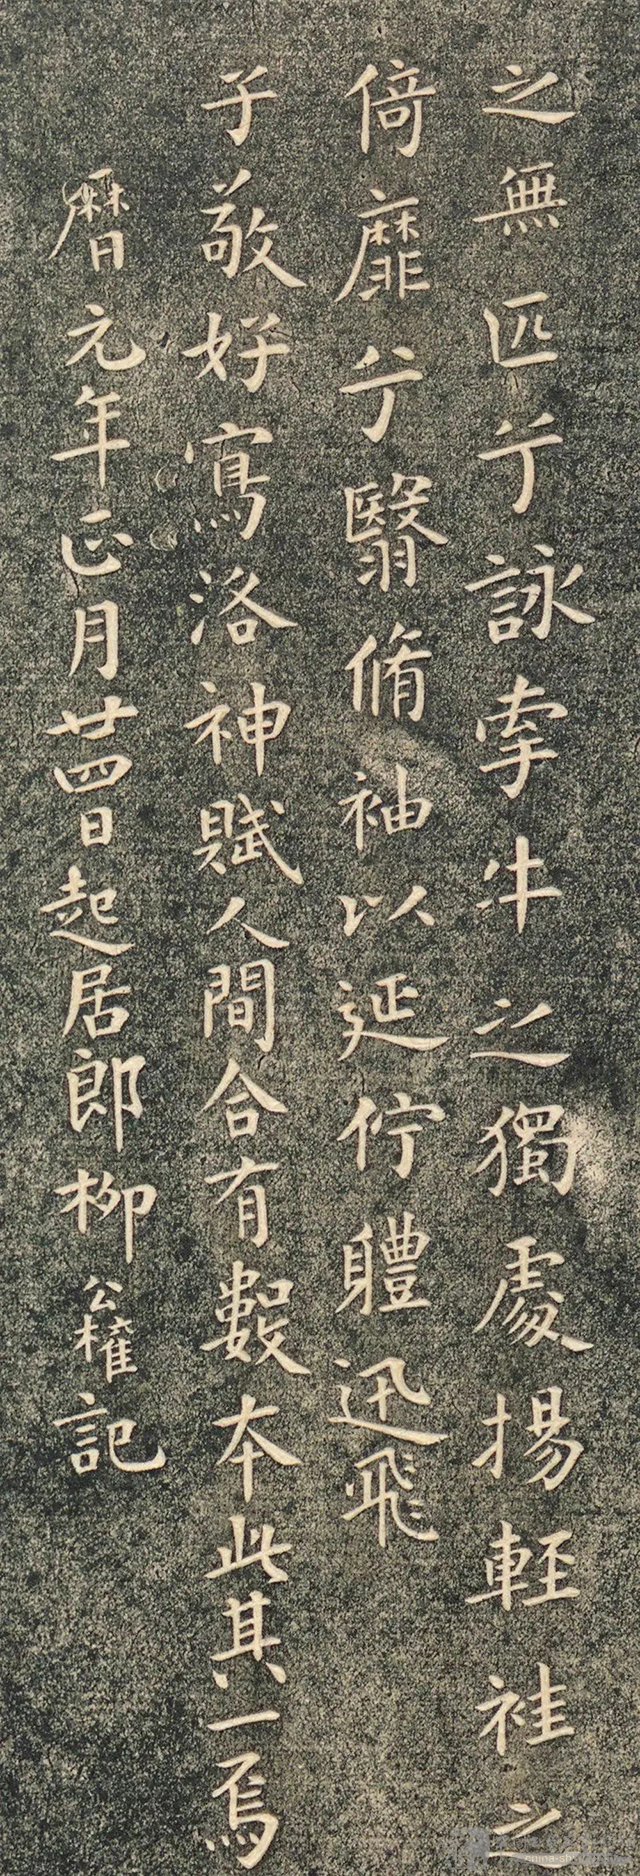 之無匹兮詠牽牛之獨處揚輕袿之
倚靡兮翳脩袖以延佇軆迅飛
子敬好寫洛神賦人間合有數本此其一焉
曆元年正月廿四日起居郎柳公權記